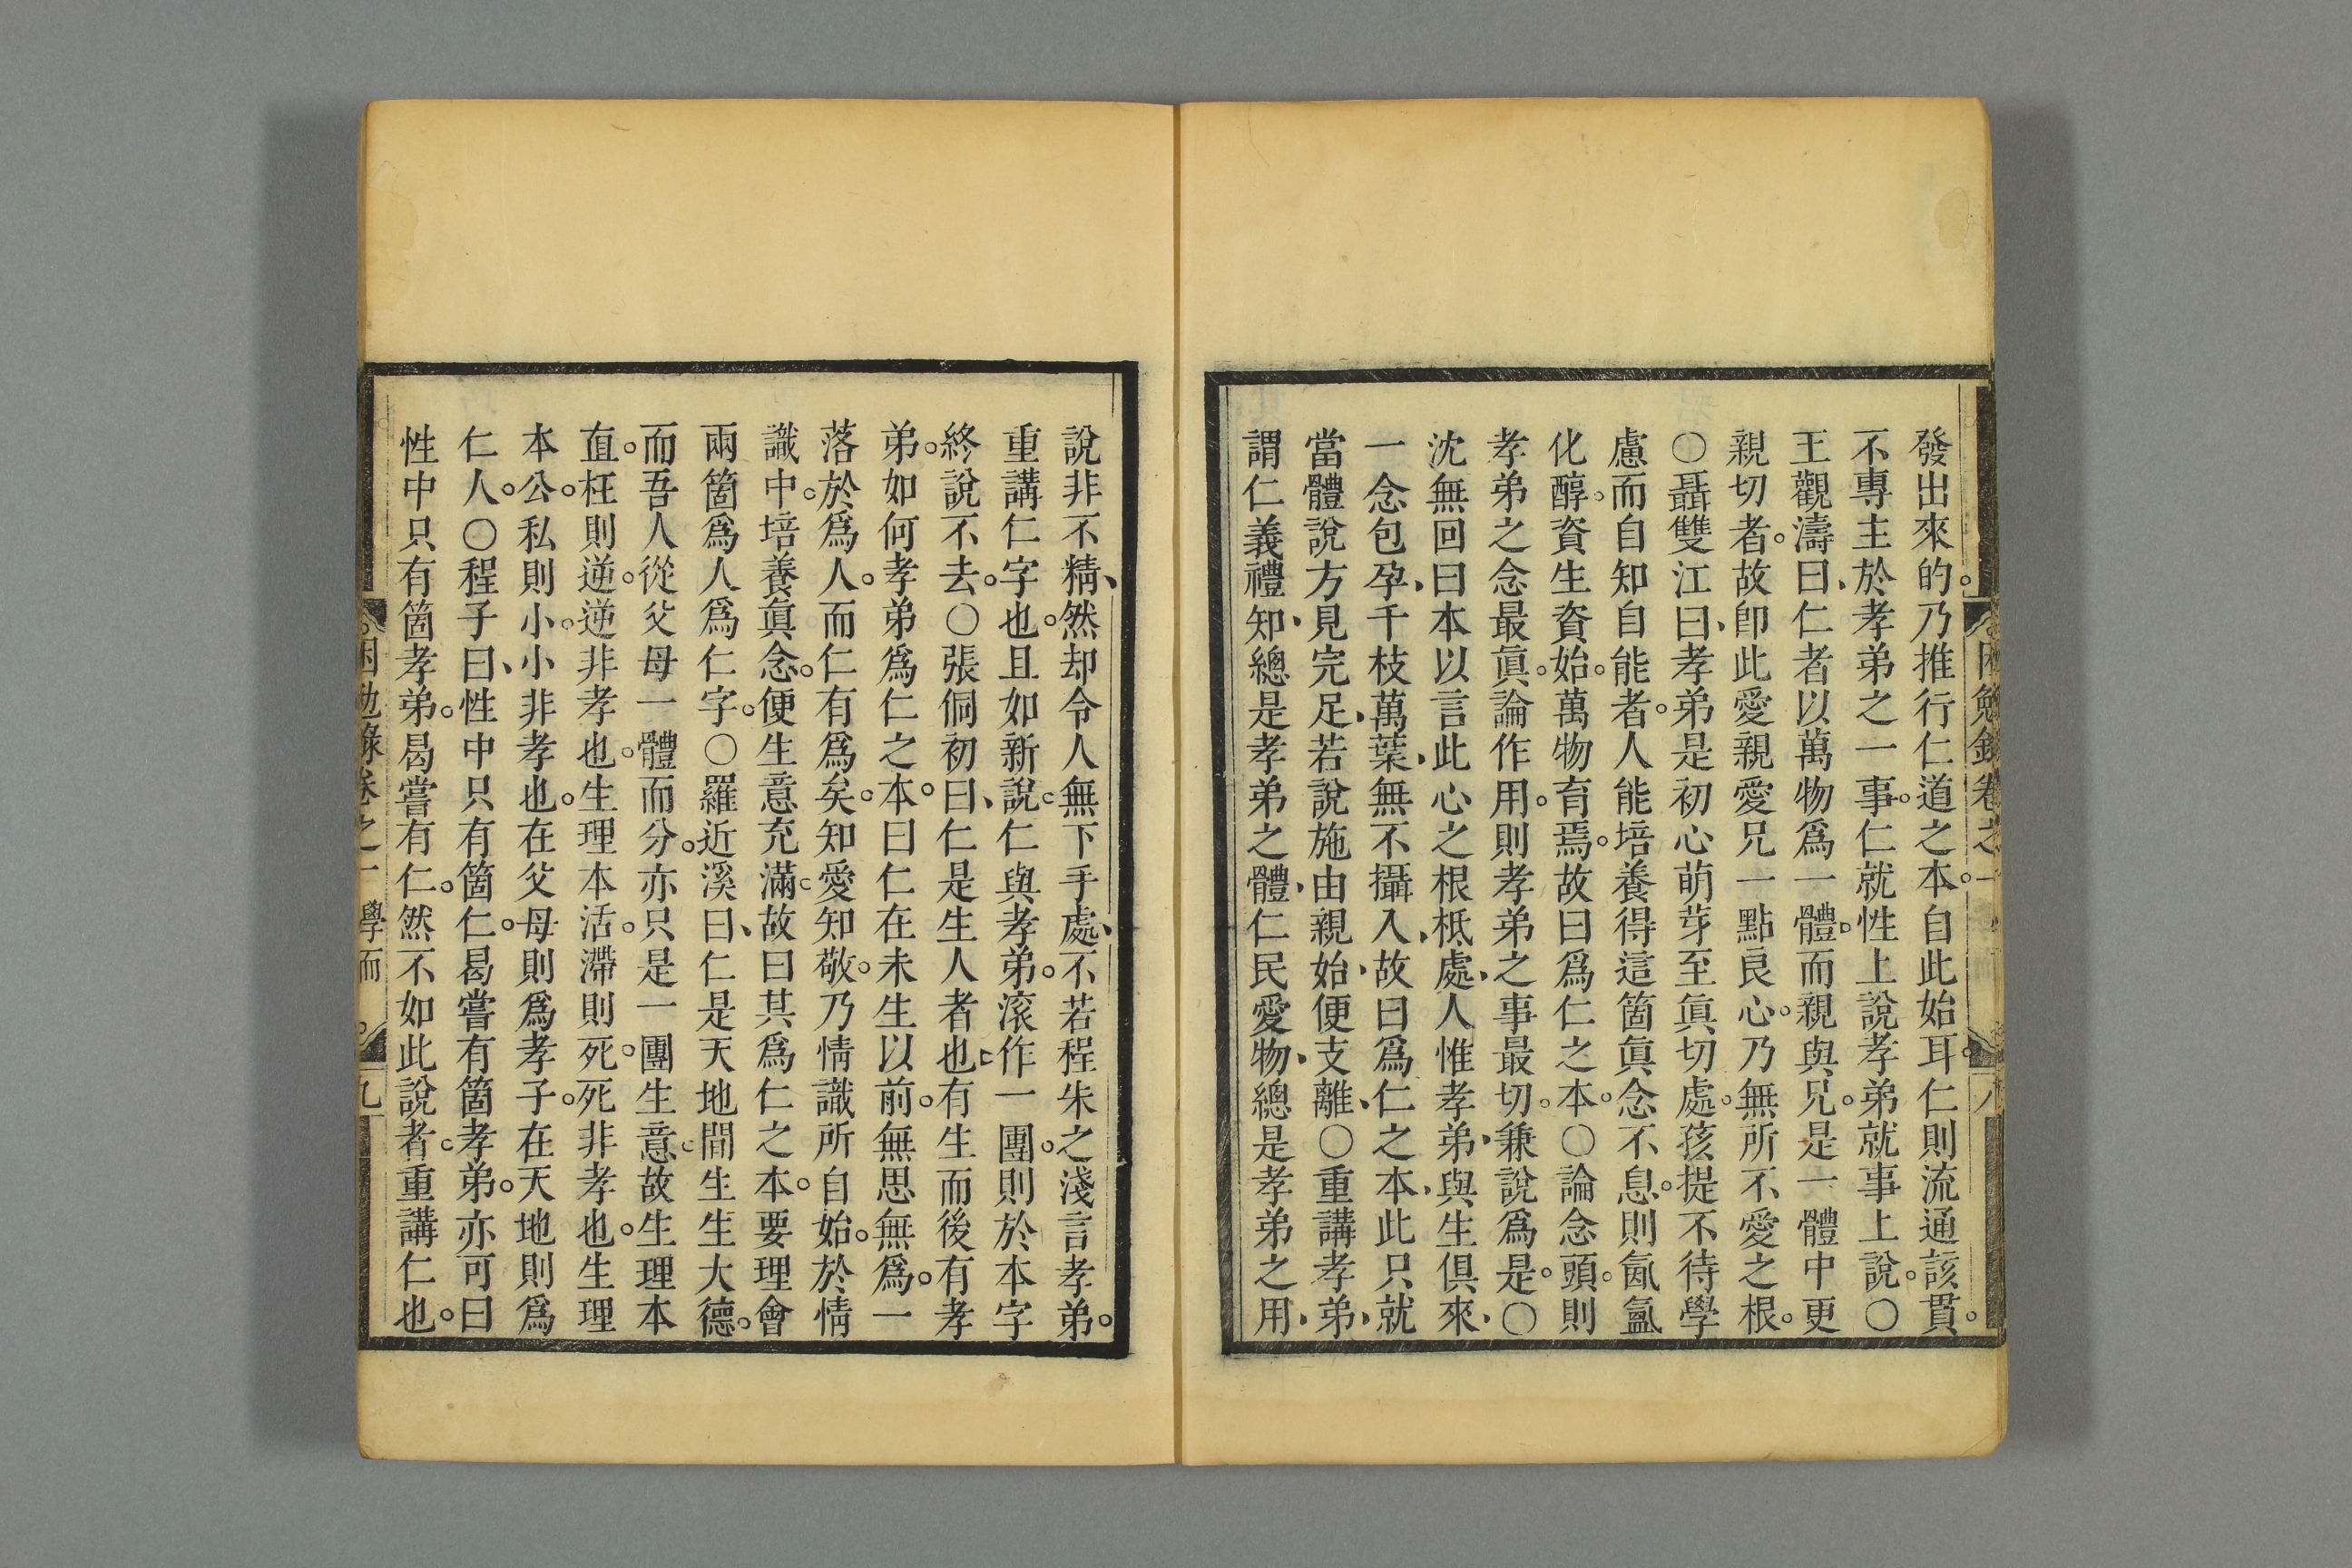 困勉錄卷之一
八
發出來的。乃推行仁道之本。自此始耳。仁則流通該貫。
不專主於孝弟之一事。仁就性上說孝弟就事上說。○
王觀濤曰、仁者以萬物爲一體。而親與兄。是一體中更
親切者。故卽此愛親愛兄一點良心。乃無所不愛之根。
○聶雙江曰、孝弟是初心萌芽至眞切處。孩提不待學
慮而自知自能者。人能培養得這箇眞念不息。則氤氳
化醇。資生資始。萬物育焉。故曰爲仁之本。○論念頭。則
孝弟之念最眞。論作用。則孝弟之事最切。兼說爲是。○
沈無回曰本以言此心之根柢處、人惟孝弟、與生俱來、
一念包孕、千枝萬葉、無不攝入、故曰爲仁之本、此只就
當體說方見完足、若說施由親始、便支離、○重講孝弟、
謂仁義禮知、總是孝弟之體、仁民愛物、總是孝弟之用、
說非不精、然却令人無下手處、不若程朱之淺言孝弟。
重講仁字也。且如新說。仁與孝弟。滚作一團。則於本字
終說不去。○張侗初曰、仁是生人者也。有生而後有孝
弟。如何孝弟爲仁之本。曰仁在未生以前。無思無爲。一
落於爲人。而仁有爲矣。知愛知敬。乃情識所自始。於情
識中。培養眞念。便生意充滿。故曰其爲仁之本。要理會
兩箇爲人爲仁字。○羅近溪曰、仁是天地間生生大德。
而吾人從父母一體而分。亦只是一團生意。故生理本
直。枉則逆。逆非孝也。生理本活。滯則死。死非孝也。生理
本公。私則小。小非孝也。在父母則爲孝子。在天地則爲
仁人。○程子曰、性中只有箇仁。曷嘗有箇孝弟。亦可曰
性中只有箇孝弟。曷嘗有仁。然不如此說者。重講仁也。
困勉錄卷之一 學而
九